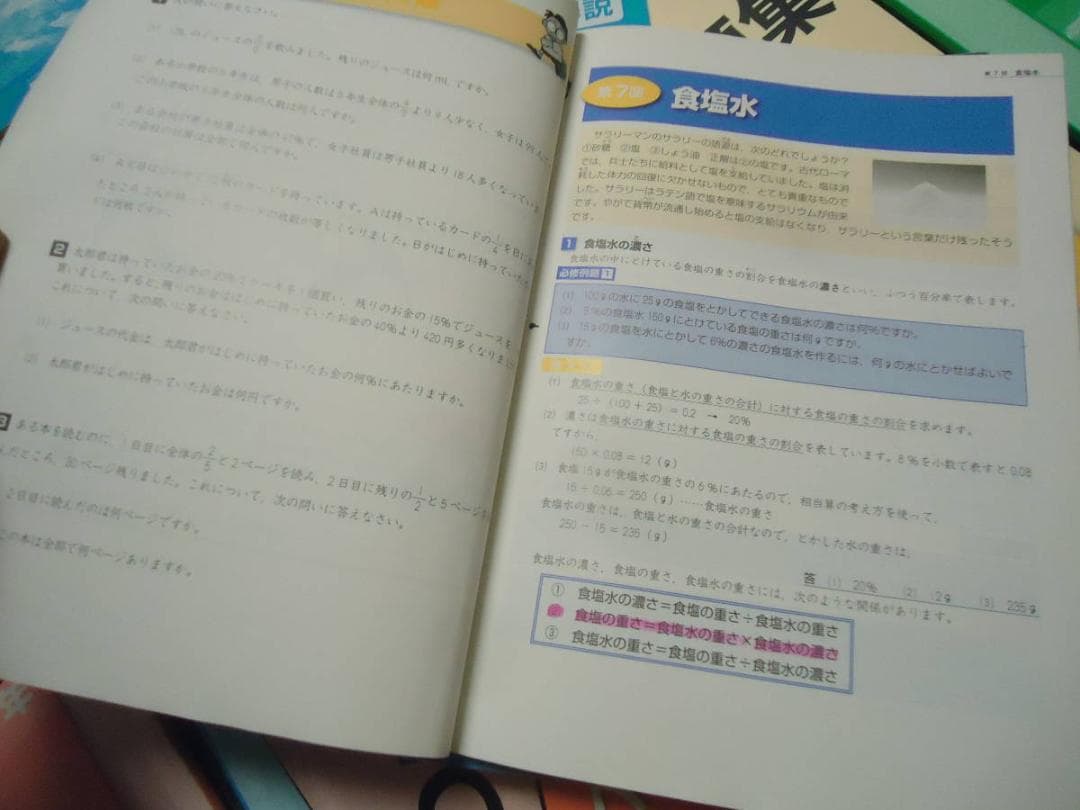 次の問いに答えなさい。
のジュースの を飲みました。残りのジュースは何mLですか。
ある小学校の5年生は、男子の人数は5年生全体の より 人少なく、女子は
この小学校の5年生全体の人数は何人ですか。
女子社員は男子社員より18人多くなってい
この会社の社員は全部で何人ですか。
のカードを持っています。Aは持っているカードの1/4をBに
ところ、2人が持っているカードの枚数が等しくなりました。Bがはじめに持っていた
は何枚ですか。
2 太郎君は持っていたお金の 残りのお金の15%でジュースを
買いました。すると、残りのお金ははじめに持っていたお金の40%より420円多くなりまし
これについて、次の問いに答えなさい。
(1) ジュースの代金は、太郎君がはじめに持っていたお金の何%にあたりますか。
(2) 太郎君がはじめに持っていたお金は何円ですか。
3 ある本を読むのに、1日目に全体の2/5と2ページを読み、2日目に残りの1/2と5ページ
んだところ、 ページ残りました。これについて、次の問いに答えなさい。
2日目に読んだのは何ページですか。
この本は全部で何ページありますか。
説
集
第7回 食塩水
第7回 食塩水
サラリーマンのサラリーの語源は、次のどれでしょうか?
①砂糖 ②塩 ③しょう油 正解は②の塩です。古代ローマ
では、兵士たちに給料として塩を支給していました。塩は消
耗した体力の回復に欠かせないもので、とても貴重なもので
した。サラリーはラテン語で塩を意味するサラリウムが由来
です。やがて貨幣が流通し始めると塩の支給はなくなり、サラリーという言葉だけ残ったそう
です。
1 食塩水の濃さ
食塩水の中にとけている食塩の重さの割合を食塩水の濃さといい、ふつう百分率で表します。
必修例題 1
(1) 100gの水に25gの食塩をとかしてできる食塩水の濃さは何%ですか。
(2) 8%の食塩水150gにとけている食塩の重さは何gですか。
(3) 15gの食塩を水にとかして6%の濃さの食塩水を作るには、何gの水にとかせばよいで
すか。
(1) 食塩水の重さ(食塩と水の重さの合計)に対する食塩の重さの割合を求めます。
25÷(100+25)=0.2 → 20%
(2) 濃さは食塩水の重さに対する食塩の重さの割合を表しています。8%を小数で表すと0.08
ですから、
150×0.08=12(g)
(3) 食塩15gが食塩水の重さの6%にあたるので、相当算の考え方を使って、
15÷0.06=250(g)……食塩水の重さ
食塩水の重さは、食塩と水の重さの合計なので、とかした水の重さは、
250-15=235(g)
答 (1) 20% (2) 12g (3) 235g
食塩水の濃さ、食塩の重さ、食塩水の重さには、次のような関係があります。
① 食塩水の濃さ=食塩の重さ÷食塩水の重さ
② 食塩の重さ=食塩水の重さ×食塩水の濃さ
③ 食塩水の重さ=食塩の重さ÷食塩水の濃さ